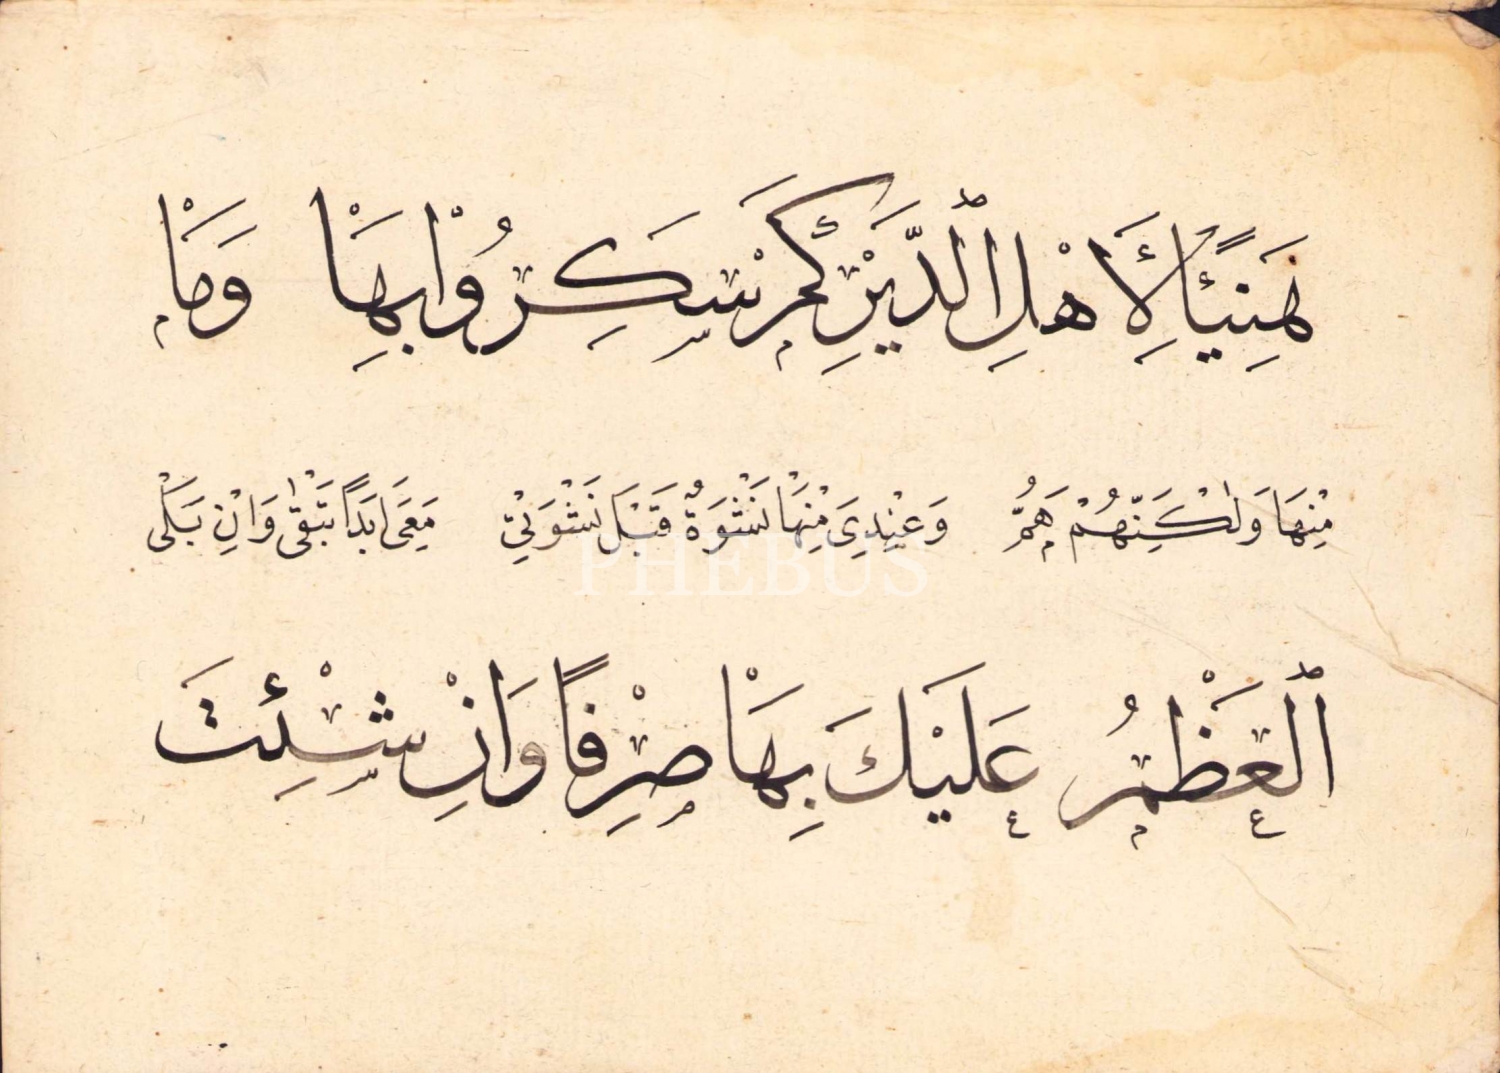 هَنِيْئًا لِأَهْلِ الدَّيْرِ كَمْ سَكِرُوْا بِهَا وَمَا
مِنْهَا وَلٰكِنَّهُمْ هَمُّ وَعِنْدِىَ مِنْهَا نَشْوَةٌ قَبْلَ نَشْوَتِىْ مَعِىَ اَبَدًا تَبْقٰى وَاِنْ بَلَى
الْعَظْمُ عَلَيْكَ بِهَا صِرْفًا وَاِنْ شِئْتَ
PHEBUS